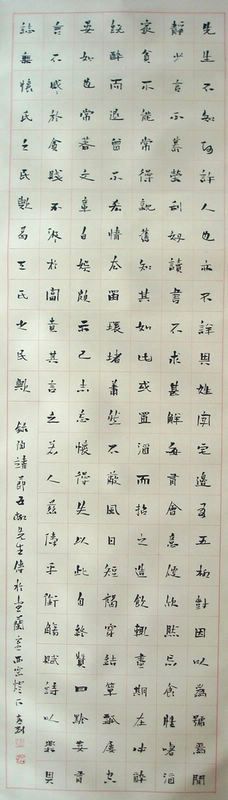 先生不知何許人也亦不詳其姓字宅邊有五柳樹因以為號焉閑
靜少言不慕榮利好讀書不求甚解每有會意便欣然忘食性嗜酒
家貧不能常得親舊知其如此或置酒而招之造飲輒盡期在必醉
既醉而退曾不吝情去留環堵蕭然不蔽風日短褐穿結簞瓢屢空
晏如也常著文章自娛頗示己志忘懷得失以此自終贊曰黔婁有
言不戚於貧賤不汲於富貴其言之若人茲儔乎銜觴賦詩以樂其
志無懷氏之民歟葛天氏之民歟 錄陶靖節五柳先生傳於